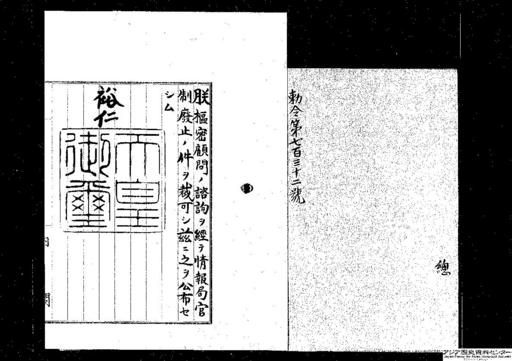 勅令第七百三十二號
總
朕樞密顧問ノ諮詢ヲ經テ情報局官
制廢止ノ件ヲ裁可シ茲ニ之ヲ公布セ
シム
裕仁
天皇
御璽
内閣
アジア歴史資料センター